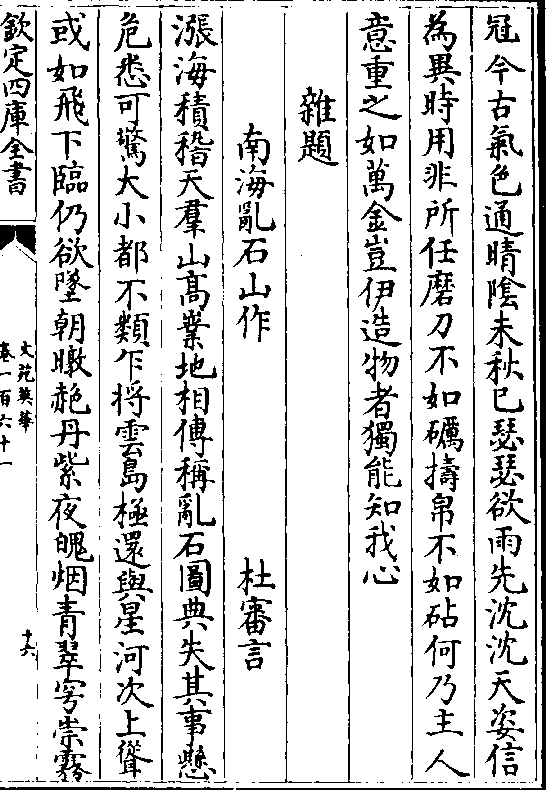 冠今古氣色通晴陰未秋已瑟瑟欲雨先沈沈天姿信
為異時用非所任磨刀不如礪擣帛不如砧何乃主人
意重之如萬金豈伊造物者獨能知我心
雜題
南海亂石山作 杜審言
漲海積稽天羣山髙業地相傳稱亂石圖典失其事懸
危悉可驚大小都不類乍將雲島極還與星河次上聳
或如飛下臨仍欲墜朝暾赩丹紫夜魄烟青翠穹崇霧
欽定四庫全書
文苑英華
卷一百六十一
十六